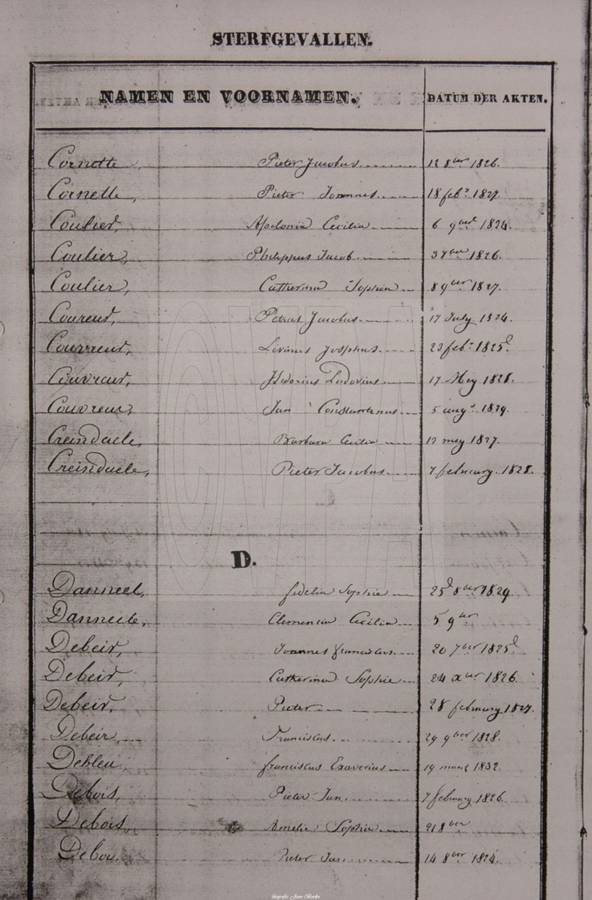 STERFGEVALLEN.
NAMEN EN VOORNAMEN. DATUM DER AKTEN.
Cornette, Pieter Jacobus 12 8ber 1826.
Cornette, Pieter Joannes 18 feb. 1827.
Coulier, Apolonia Cecilia 6 1824.
Coulier, Philippus Jacob 1826.
Coulier, Catharina Sophia 8 9ber 1827.
Coureur, Petrus Jacobus 17 July 1824.
Couvreur, Livinus Josephus 23 feb. 1825
Couvreur, Isidorius Ludovicus 17 Mey 1828.
Couvreur, Jan Constantinus 5 aug. 1829.
Creindaele, Barbara Cecilia 12 mey 1827.
Creindaele, Pieter Jacobus 7 february 1828.
D.
Danneel, fidelia Sophie 25 8ber 1829
Danneele, Clementia Cecilia 5 9ber
Debeir, Joannes franciscus 20 7ber 1825
Debeir, Catharina Sophie 24 xber 1826
Debeir, Pieter 28 february 1827.
Debeir Franciscus 29 9ber 1828.
Debleu, franciscus Exaverius 19 maart 1832.
Debois, Pieter Jan 7 february 1826.
Debois, Amelie Sophia 21 8ber
Debois Pieter Jan 14 8ber 1824.